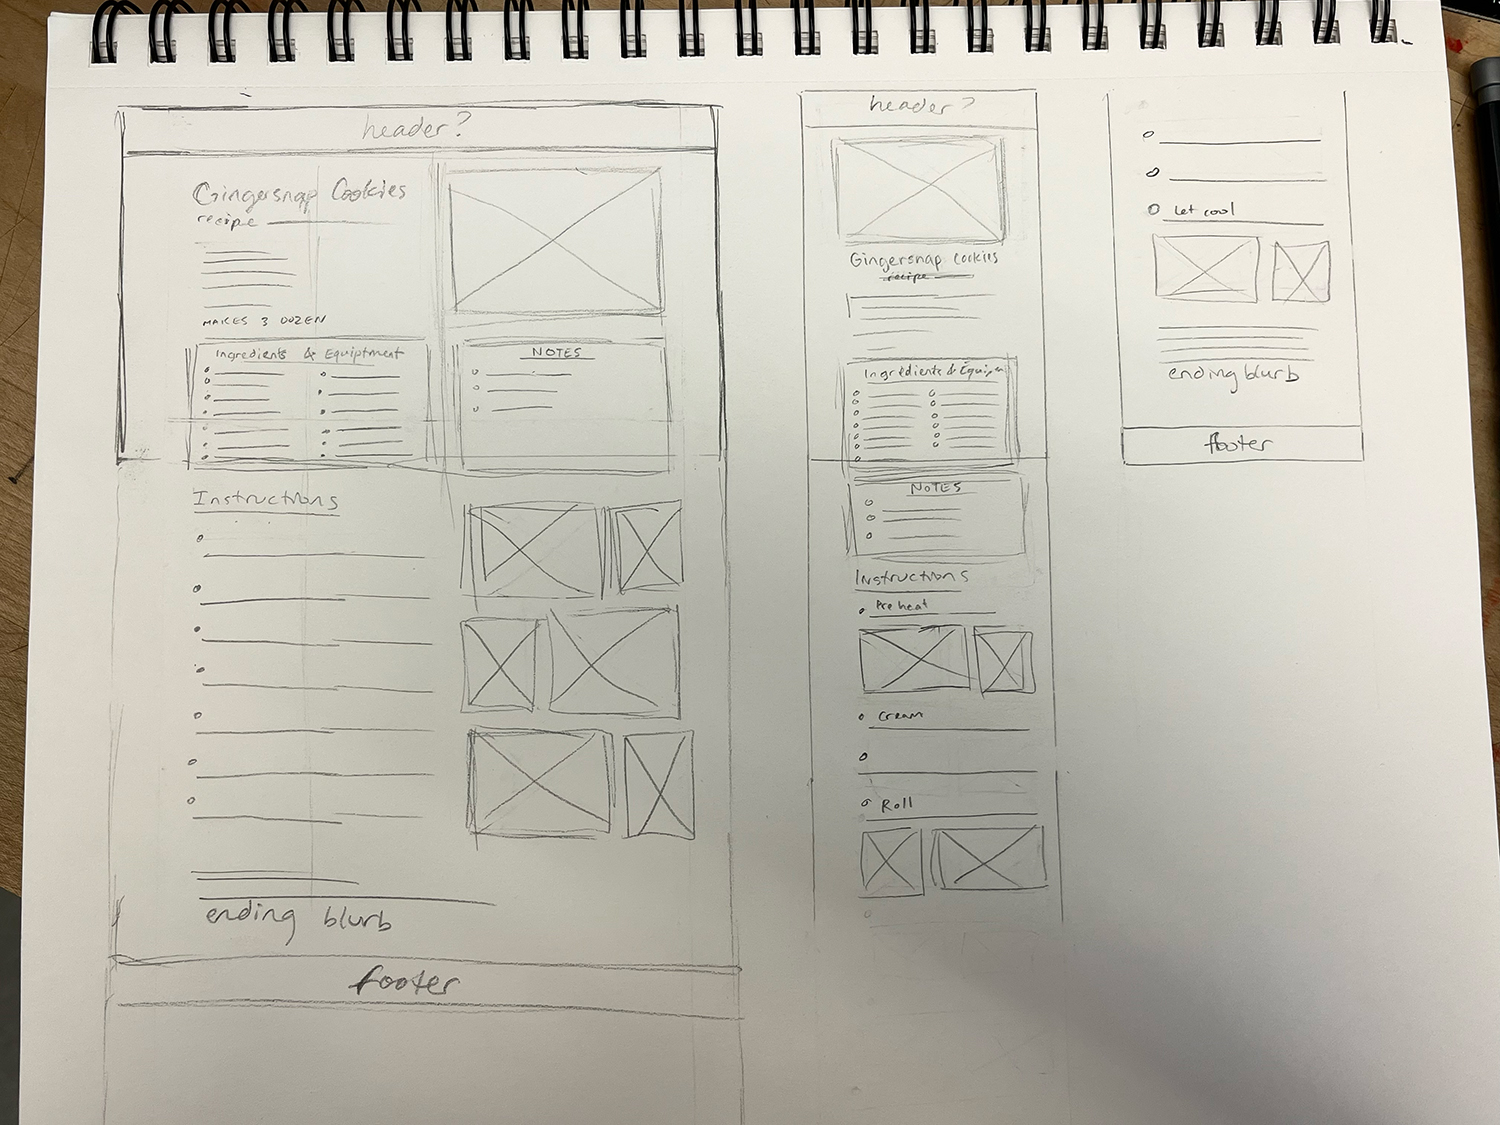 header?
Gingersnap Cookies
recipe
MAKES 3 DOZEN
Ingredients & Equiptment
NOTES
Instructions
ending blurb
footer
header?
Gingersnap Cookies
recipe
Ingredients & Equipm
NOTES
Instructions
Preheat
Cream
Roll
Let cool
ending blurb
footer